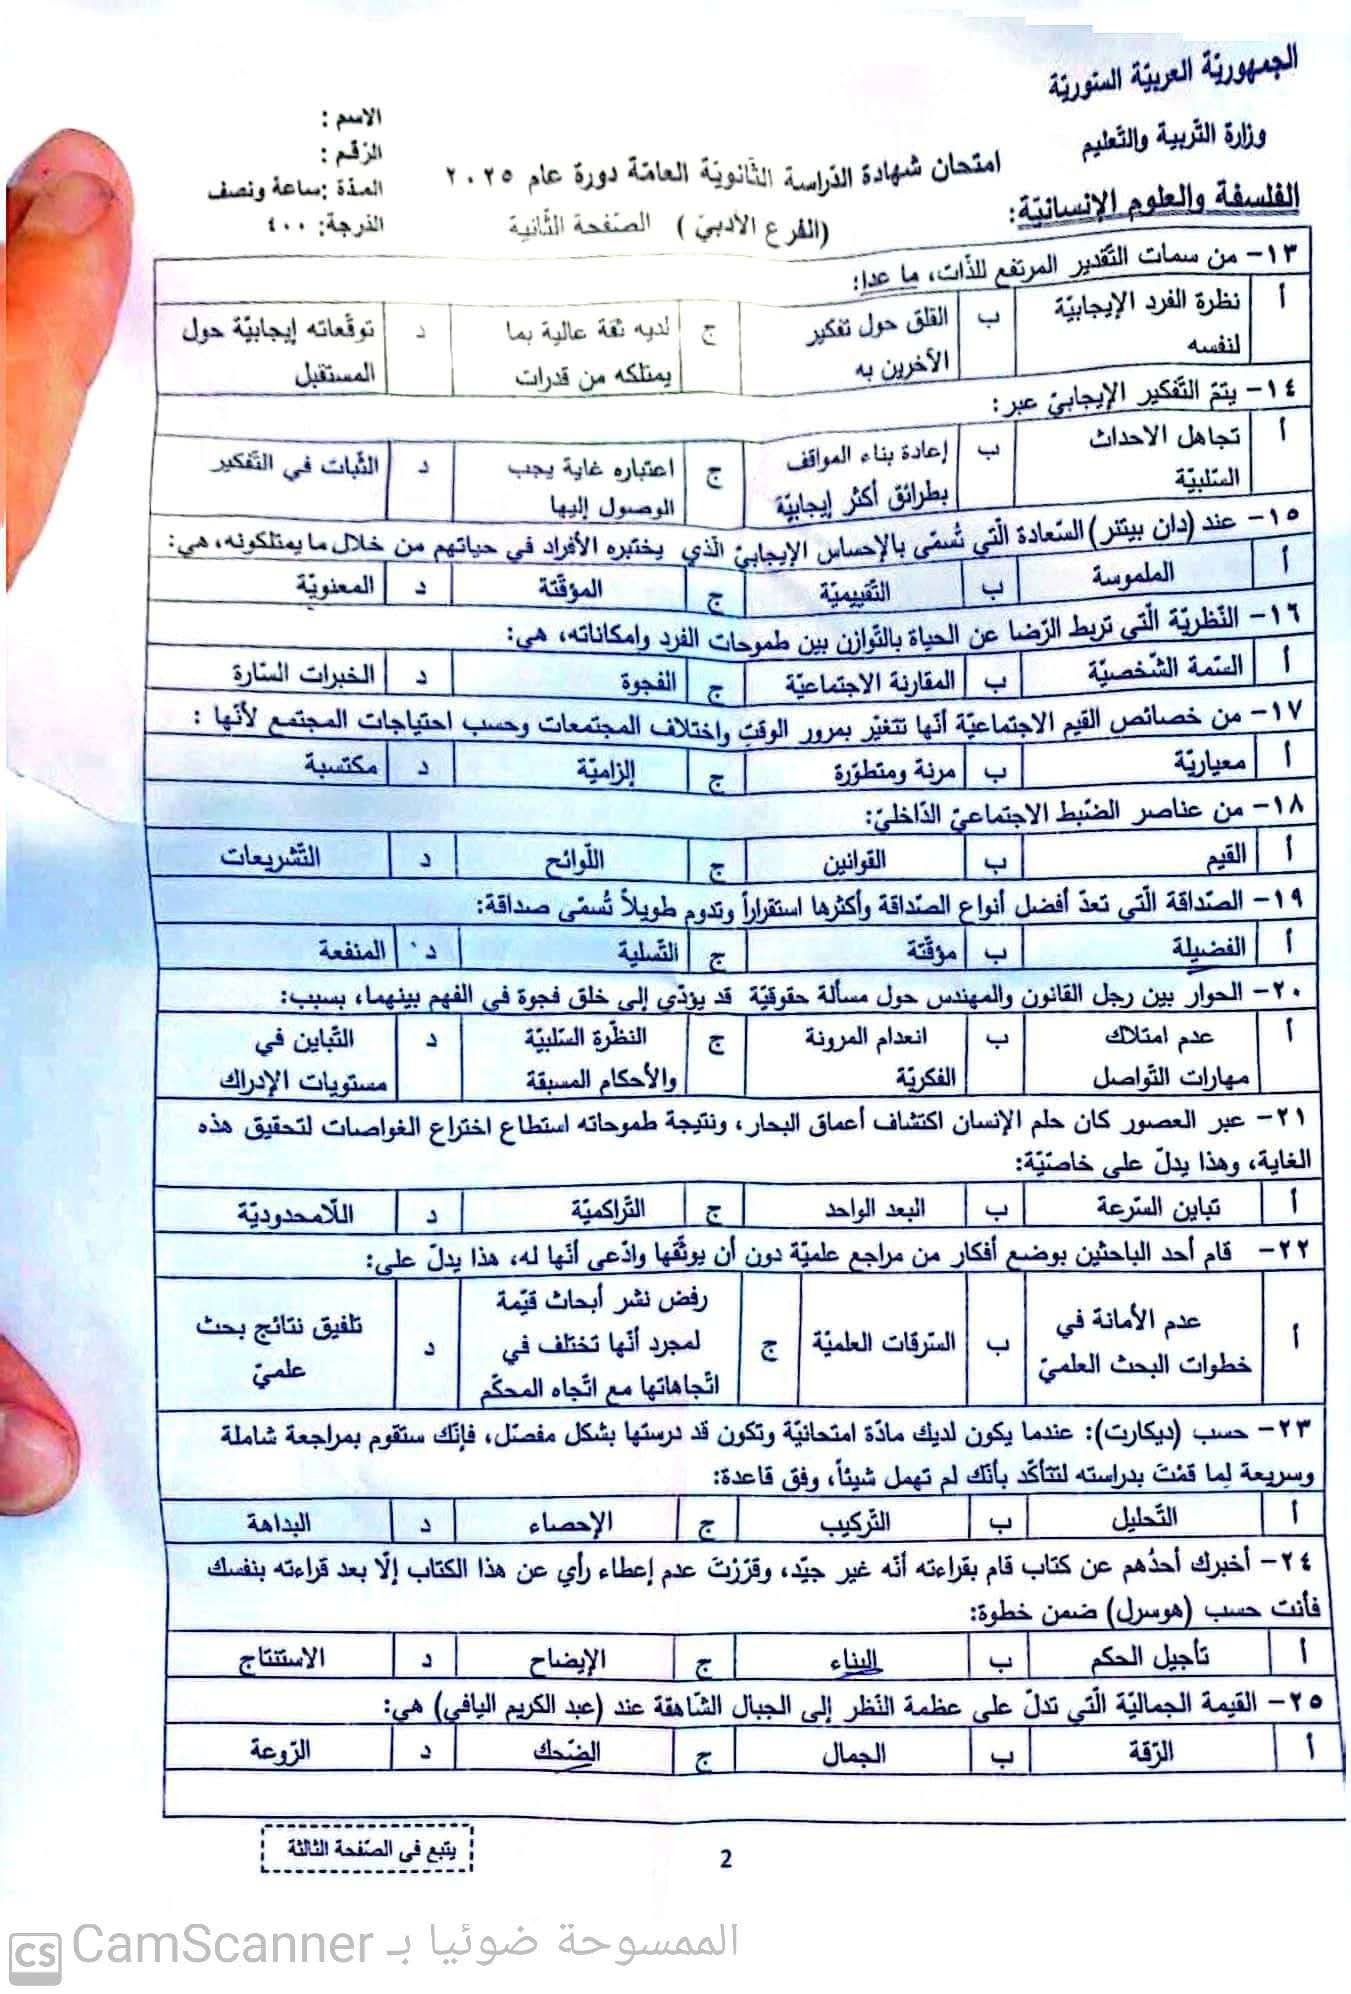 الجمهوريّة العربيّة السّوريّة
وزارة التّربية والتّعليم
امتحان شهادة الدّراسة الثّانويّة العامّة دورة عام ٢٠٢٥
الفلسفة والعلوم الإنسانيّة:
(الفرع الأدبيّ) الصّفحة الثّانية
الاسم :
الرّقم :
المدّة :ساعة ونصف
الدّرجة: ٤٠٠
١٣- من سمات التّقدير المرتفع للذّات، ما عدا:
أ نظرة الفرد الإيجابيّة لنفسه ب القلق حول تفكير الآخرين به ج لديه ثقة عالية بما يمتلكه من قدرات د توقّعاته إيجابيّة حول المستقبل
١٤- يتمّ التّفكير الإيجابيّ عبر:
أ تجاهل الاحداث السّلبيّة ب إعادة بناء المواقف بطرائق أكثر إيجابيّة ج اعتباره غاية يجب الوصول إليها د الثّبات في التّفكير
١٥- عند (دان بيتنر) السّعادة الّتي تُسمّى بالإحساس الإيجابيّ الّذي يختبره الأفراد في حياتهم من خلال ما يمتلكونه، هي:
أ الملموسة ب التّقييميّة ج المؤقّتة د المعنويّة
١٦- النّظريّة الّتي تربط الرّضا عن الحياة بالتّوازن بين طموحات الفرد وإمكاناته، هي:
أ السّمة الشّخصيّة ب المقارنة الاجتماعيّة ج الفجوة د الخبرات السّارة
١٧- من خصائص القيم الاجتماعيّة أنّها تتغيّر بمرور الوقت واختلاف المجتمعات وحسب احتياجات المجتمع لأنّها :
أ معياريّة ب مرنة ومتطوّرة ج إلزاميّة د مكتسبة
١٨- من عناصر الضّبط الاجتماعيّ الدّاخليّ:
أ القيم ب القوانين ج اللّوائح د التّشريعات
١٩- الصّداقة الّتي تعدّ أفضل أنواع الصّداقة وأكثرها استقراراً وتدوم طويلاً تُسمّى صداقة:
أ الفضيلة ب مؤقّتة ج التّسلية د المنفعة
٢٠- الحوار بين رجل القانون والمهندس حول مسألة حقوقيّة قد يؤدّي إلى خلق فجوة في الفهم بينهما، بسبب:
أ عدم امتلاك مهارات التّواصل ب انعدام المرونة الفكريّة ج النظّرة السّلبيّة والأحكام المسبقة د التّباين في مستويات الإدراك
٢١- عبر العصور كان حلم الإنسان اكتشاف أعماق البحار، ونتيجة طموحاته استطاع اختراع الغواصات لتحقيق هذه
الغاية، وهذا يدلّ على خاصّيّة:
أ تباين السّرعة ب البعد الواحد ج التّراكميّة د اللّامحدوديّة
٢٢- قام أحد الباحثين بوضع أفكار من مراجع علميّة دون أن يوثّقها وادّعى أنّها له، هذا يدلّ على:
أ عدم الأمانة في خطوات البحث العلميّ ب السّرقات العلميّة ج رفض نشر أبحاث قيّمة لمجرد أنّها تختلف في اتّجاهاتها مع اتّجاه المحكّم د تلفيق نتائج بحث علميّ
٢٣- حسب (ديكارت): عندما يكون لديك مادّة امتحانيّة وتكون قد درستها بشكل مفصّل، فإنّك ستقوم بمراجعة شاملة
وسريعة لِما قمْتَ بدراسته لتتأكّد بأنّك لم تهمل شيئاً، وفق قاعدة:
أ التّحليل ب التّركيب ج الإحصاء د البداهة
٢٤- أخبرك أحدُهم عن كتاب قام بقراءته أنّه غير جيّد، وقرّرْتَ عدم إعطاء رأي عن هذا الكتاب إلّا بعد قراءته بنفسك
فأنت حسب (هوسرل) ضمن خطوة:
أ تأجيل الحكم ب البناء ج الإيضاح د الاستنتاج
٢٥- القيمة الجماليّة الّتي تدلّ على عظمة النّظر إلى الجبال الشّاهقة عند (عبد الكريم اليافي) هي:
أ الرّقة ب الجمال ج الضّحك د الرّوعة
يتبع في الصّفحة الثالثة
2
الممسوحة ضوئيا بـ CamScanner
CS